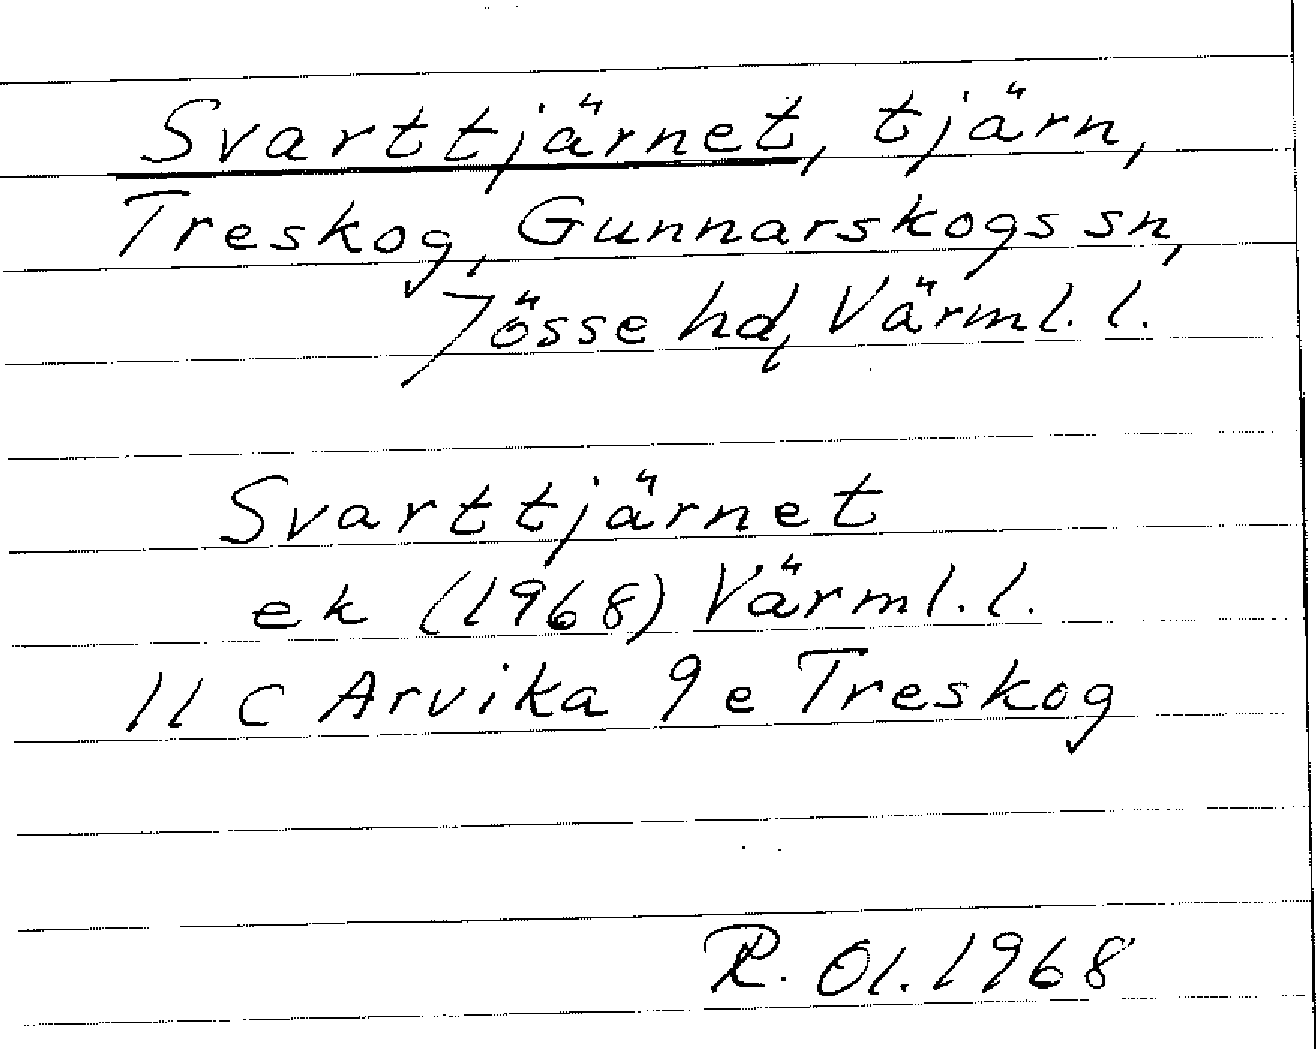 Svarttjärnet, tjärn,
Treskog, Gunnarskogs sn,
Jösse hd, Värml. l.
Svarttjärnet
ek (1968) Värml. l.
11 C Arvika 9 e Treskog
R. Ol. 1968